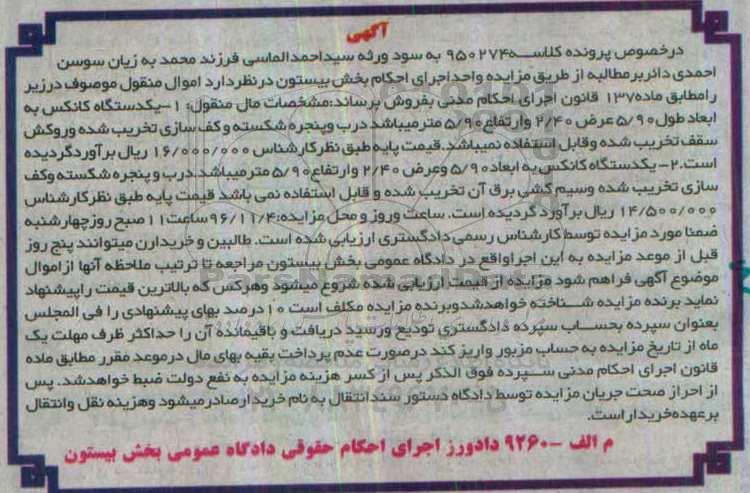 آگهی
درخصوص پرونده کلاسه ۹۵۰۲۷۴ به سود ورثه سیداحمدالماسی فرزند محمد به زیان سوسن
احمدی دائربرمطالبه از طریق مزایده واحداجرای احکام بخش بیستون درنظردارد اموال منقول موصوف درزیر
رامطابق ماده۱۳۷ قانون اجرای احکام مدنی بفروش برساند:مشخصات مال منقول: ۱-یکدستگاه کانکس به
ابعاد طول۵/۹۰ عرض ۲/۴۰ وارتفاع ۵/۹۰ مترمیباشد درب وپنجره شکسته و کف سازی تخریب شده وروکش
سقف تخریب شده وقابل استفاده نمیباشد.قیمت پایه طبق نظرکارشناس ۱۶/۰۰۰/۰۰۰ ریال برآوردگردیده
است.۲-یکدستگاه کانکس به ابعاد ۵/۹۰ وعرض ۲/۴۰ وارتفاع ۵/۹۰ مترمیباشد.درب و پنجره شکسته وکف
سازی تخریب شده وسیم کشی برق آن تخریب شده و قابل استفاده نمی باشد قیمت پایه طبق نظرکارشناس
۱۴/۵۰۰/۰۰۰ ریال برآورد گردیده است. ساعت وروز و محل مزایده:۹۶/۱۱/۴ساعت۱۱ صبح روزچهارشنبه
ضمنا مورد مزایده توسط کارشناس رسمی دادگستری ارزیابی شده است. طالبین و خریدارن میتوانند پنج روز
قبل از موعد مزایده به این اجراواقع در دادگاه عمومی بخش بیستون مراجعه تا ترتیب ملاحظه آنها ازاموال
موضوع آگهی فراهم شود مزایده از قیمت ارزیابی شده شروع میشود وهرکس که بالاترین قیمت راپیشنهاد
نماید برنده مزایده شناخته خواهدشدوبرنده مزایده مکلف است ۱۰درصد بهای پیشنهادی را فی المجلس
بعنوان سپرده بحساب سپرده دادگستری تودیع ورسید دریافت و باقیمانده آن را حداکثر ظرف مهلت یک
ماه از تاریخ مزایده به حساب مزبور واریز کند درصورت عدم پرداخت بقیه بهای مال درموعد مقرر مطابق ماده
قانون اجرای احکام مدنی سپرده فوق الذکر پس از کسر هزینه مزایده به نفع دولت ضبط خواهدشد. پس
از احراز صحت جریان مزایده توسط دادگاه دستور سندانتقال به نام خریدارصادرمیشود وهزینه نقل وانتقال
برعهده‌خریداراست.
م الف -۹۲۶۰ دادورز اجرای احکام حقوقی دادگاه عمومی بخش بیستون